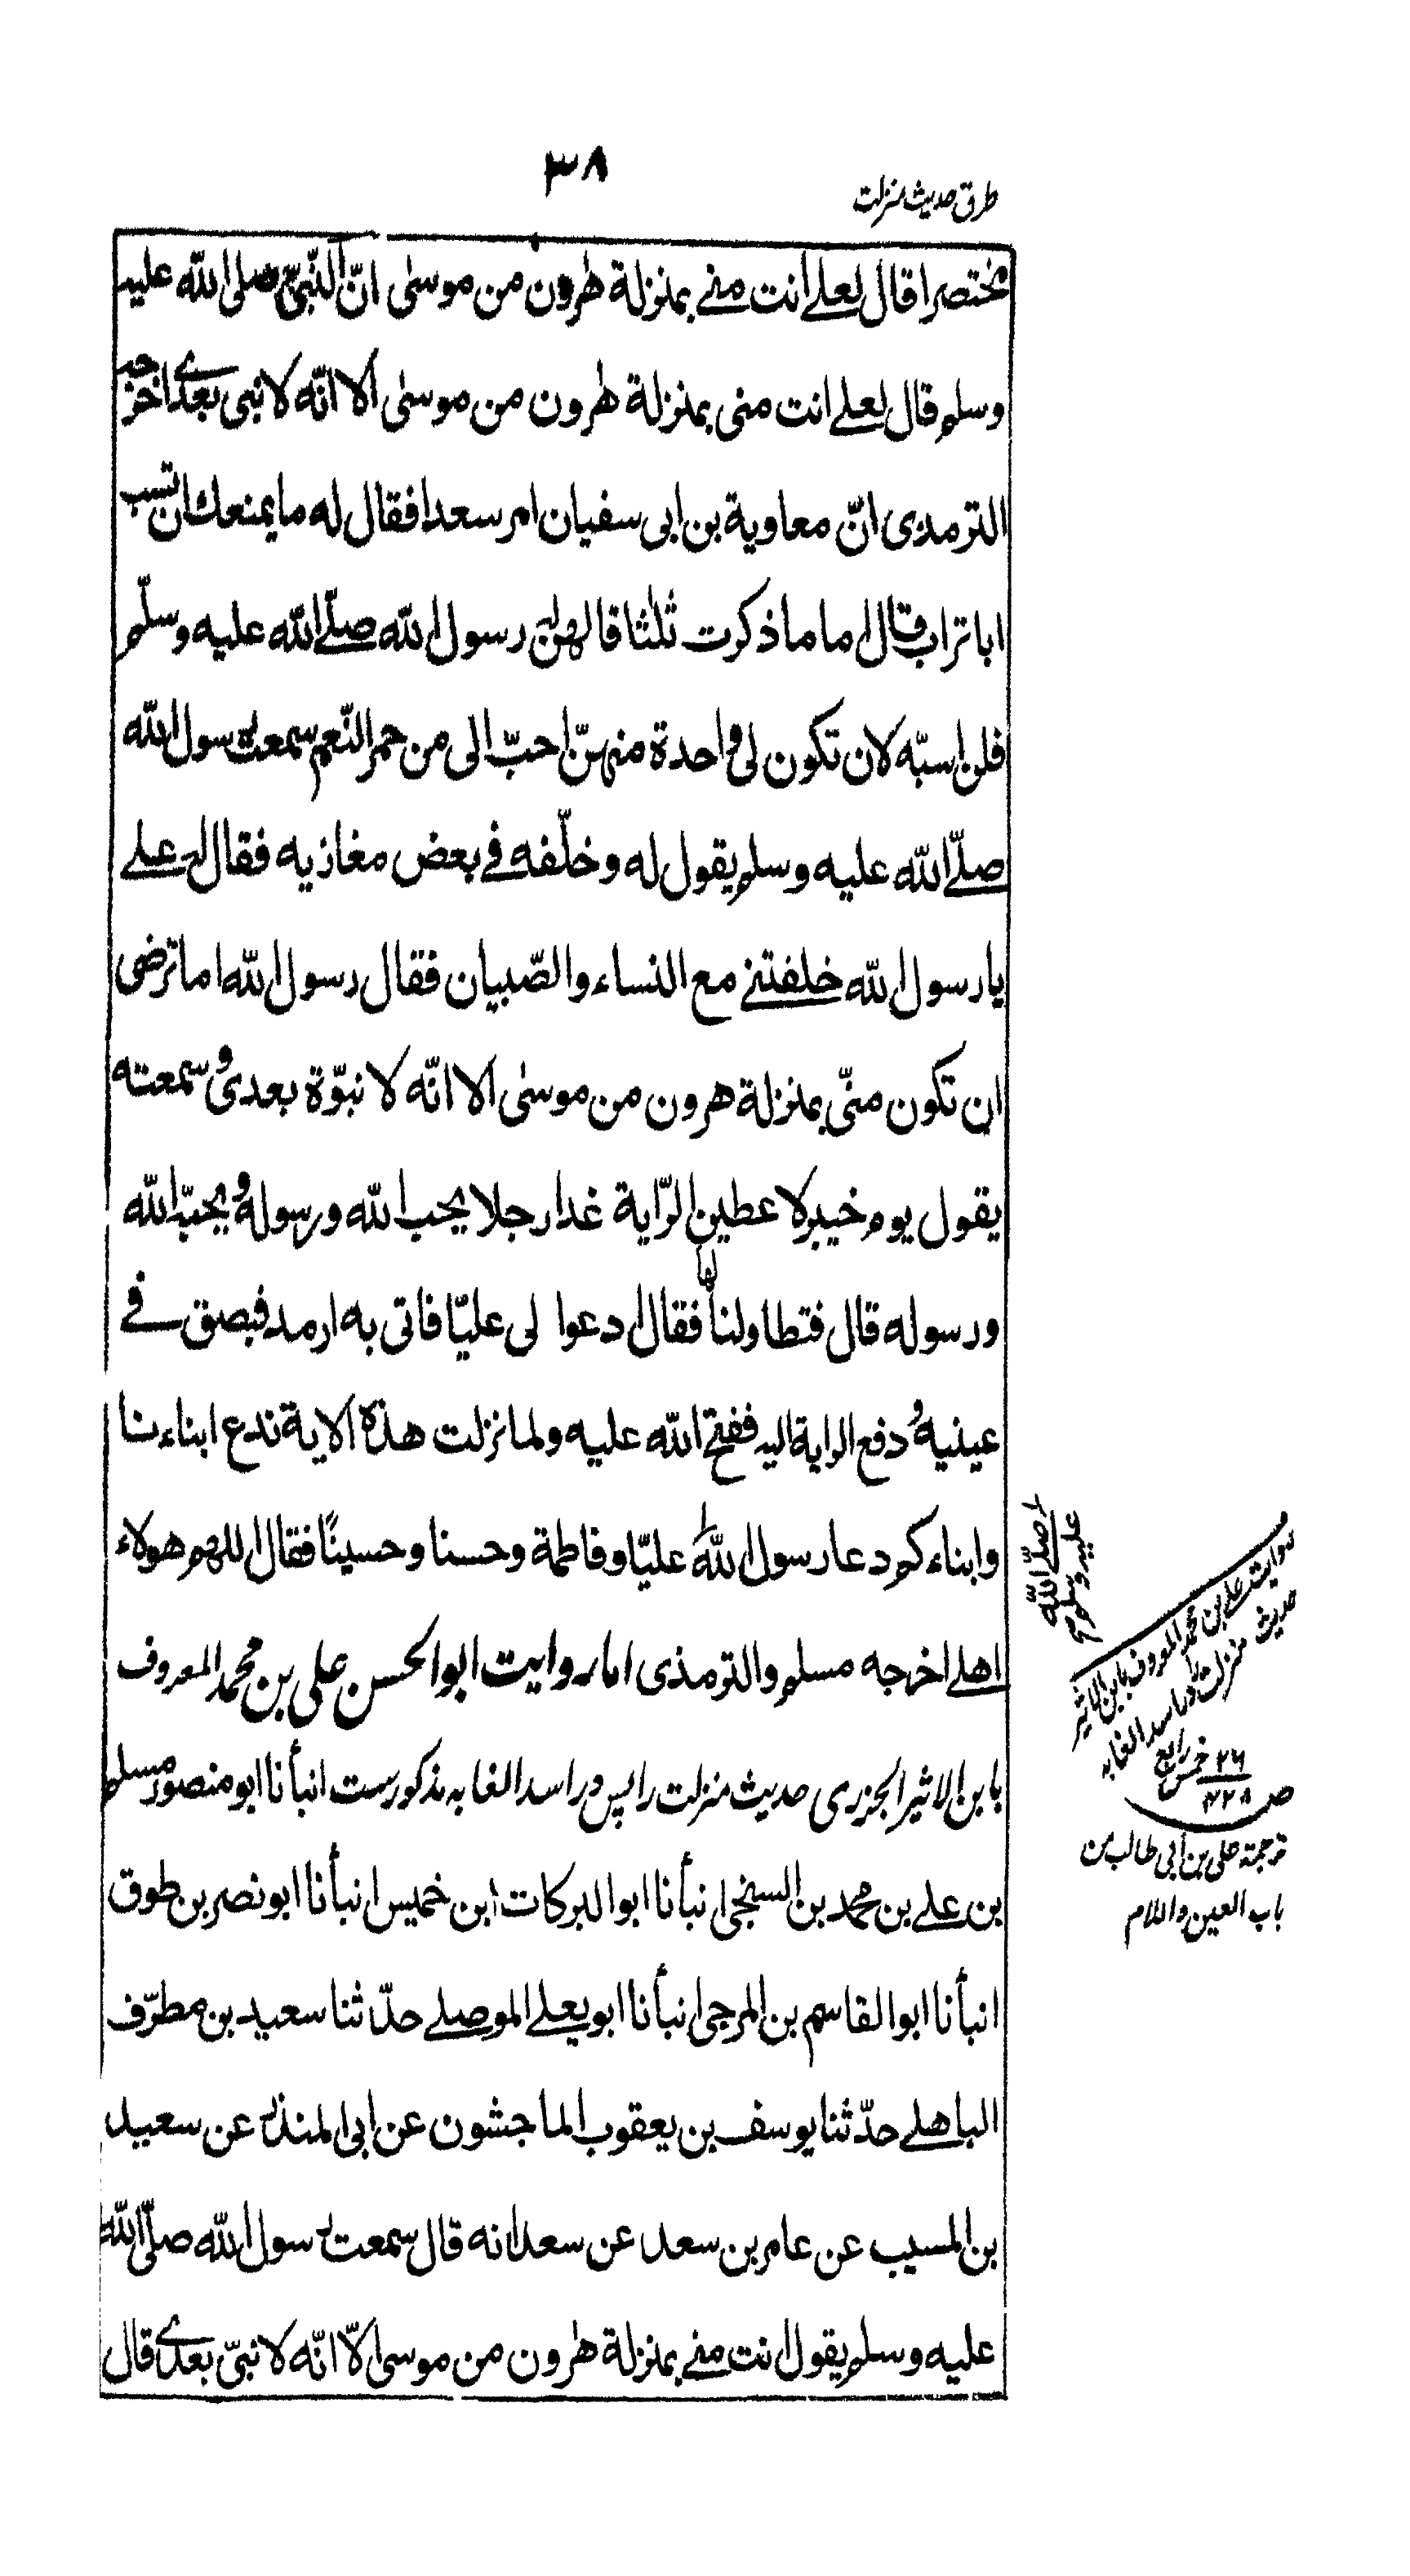 طرق حدیث منزلت
۳۸
مختصرا قال لعلے انت منے بمنزلة هٰرون من موسٰی انّ النّبیّ صلی الله علیه
وسلم قال لعلے انت منی بمنزلة هٰرون من موسٰی الا انّه لا نبی بعدے اخرجه
الترمذی انّ معاویة بن ابی سفیان امر سعدا فقال له ما یمنعك ان تسب
ابا تراب قال اما ما ذکرت ثلٰثا قالهن لہ رسول الله صلّے الله علیه وسلّم
فلن اسبّه لان تکون لی واحدة منهنّ احبّ الی من حمر النّعم سمعت رسول الله
صلّے الله علیه وسلم یقول له وخلّفه فے بعض مغازیه فقال له علے
یا رسول الله خلفتنے مع النساء والصّبیان فقال رسول الله اما ترضی
ان تکون منّی بمنزلة هرون من موسٰی الا انّه لا نبوّة بعدی وسمعته
یقول یوم خیبر لاعطین الرّایة غدا رجلا یحب الله ورسوله ویحبّه الله
ورسوله قال فتطاولنا لها فقال ادعوا لی علیّا فاتی به ارمد فبصق فے
عینیه ودفع الرایة الیه ففتح الله علیه ولما نزلت هذه الایة ندع ابناءنا
وابناءکم دعا رسول الله علیّا وفاطمة وحسنا وحسینًا فقال اللهم هولاء
اهلے اخرجه مسلم والترمذی اما روایت ابو الحسن علی بن محمد المعروف
بابن الاثیر الجزری حدیث منزلت را پس در اسد الغابه مذکورست انبأنا ابو منصور مسلم
بن علے بن محمد بن السنجی انبأنا ابو البرکات ابن خمیس انبأنا ابو نصر بن طوق
انبأنا ابو القاسم بن المرجی انبأنا ابو یعلے الموصلے حدّثنا سعید بن مطرّف
الباهلے حدّثنا یوسف بن یعقوب الماجشون عن ابی المنذر عن سعید
بن المسیب عن عامر بن سعد عن سعد انه قال سمعت رسول الله صلّی الله
علیه وسلم یقول انت منے بمنزلة هٰرون من موسی الّا انّه لا نبیّ بعدے قال
صلّے الله
علیه وسلم
روایت علے بن محمد المعروف بابن الاثیر
حدیث منزلت را در اسد الغابه
۲۶ خمس رابع
ص ۴۲۸
ترجمة علی بن ابی طالب من
باب العین واللام